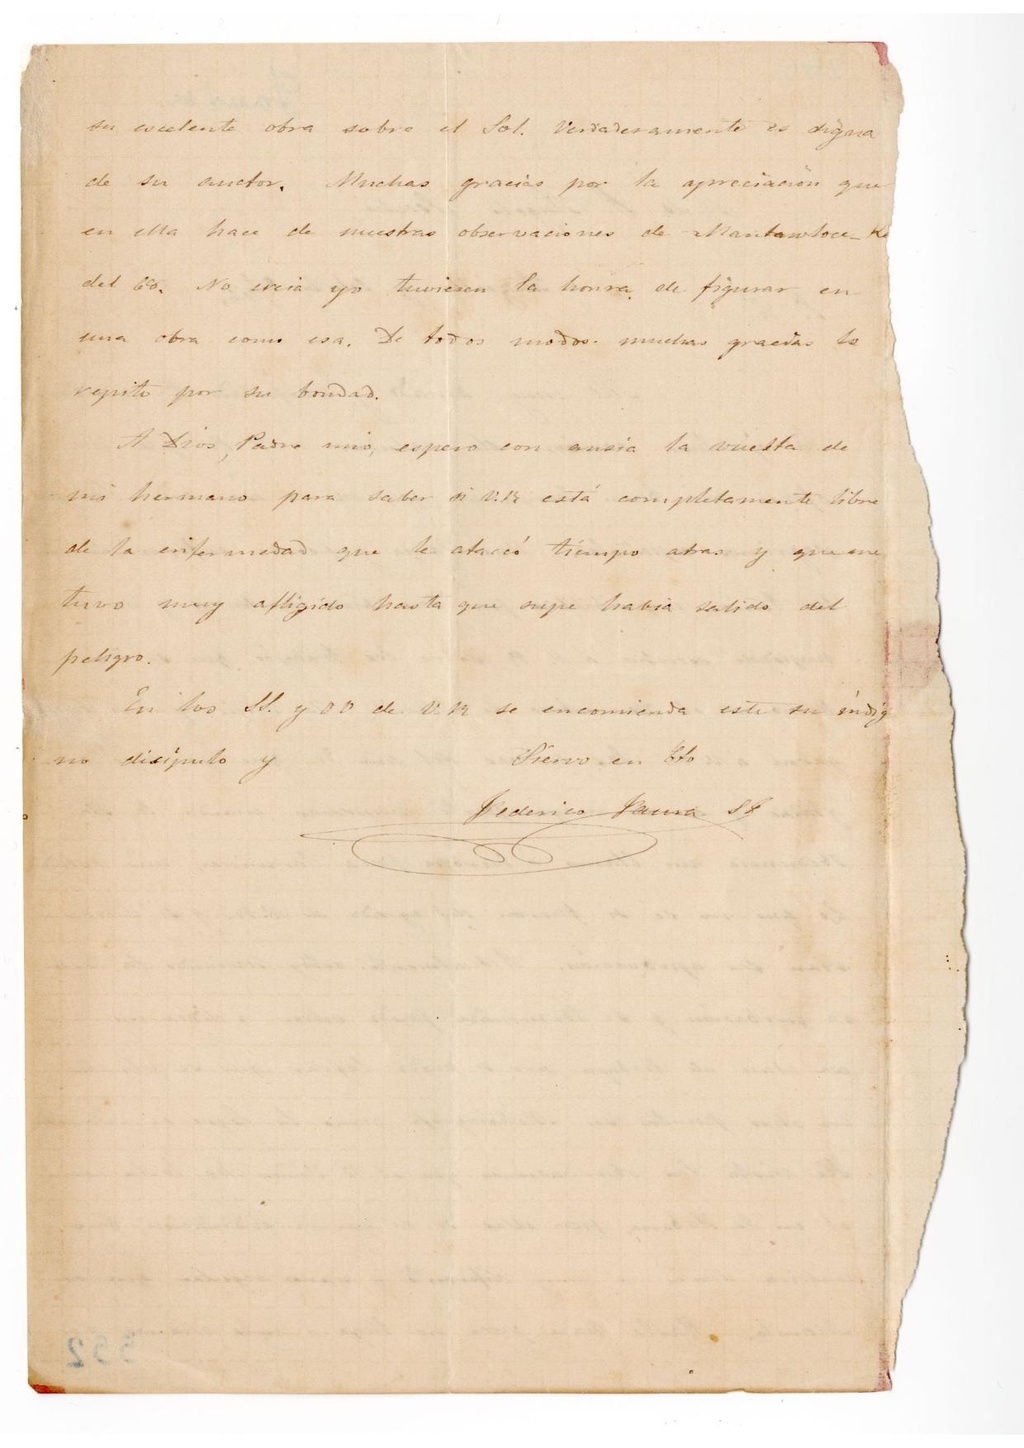 su excelente obra sobre el Sol. Verdaderamente es digna
de su auctor. Muchas gracias por la apreciación que
en ella hace de nuestras observaciones de Mantawloc-Ke
del 68. No creia yo tuviesen la honra de figurar en
una obra como esa. De todos modos muchas gracias le
repito por su bondad.
A Dios, Padre mio, espero con ansia la vuelta de
mi hermano para saber si V.R está completamente libre
de la enfermedad que le atacó tiempo atras y que me
tuvo muy afligido hasta que supe habia salido del
peligro.
En los SS. y OO de V.R se encomienda este su indig
no disípulo y Siervo en Cto
Federico Faura SJ
352